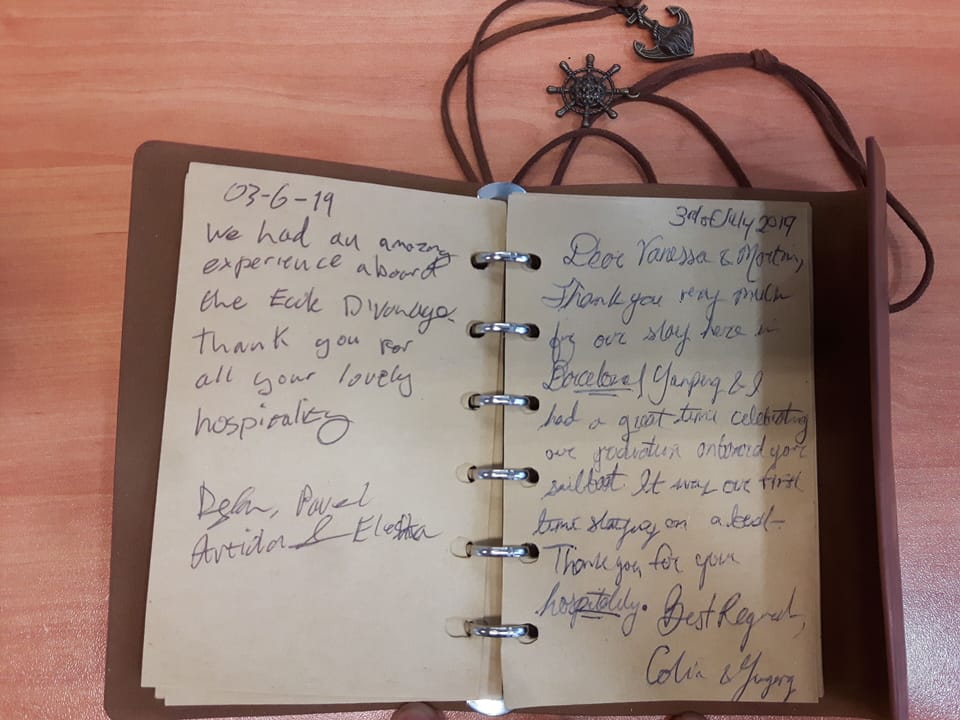 03-6-19
We had an amazing
experience aboard
the
thank you for
all your lovely
hospitality
Pavel
&
3rd of July 2019
Dear Vanessa & Martin,
Thank you very much
for our stay here in
Barcelona! Yanping & I
had a great time celebrating
our graduation onboard your
sailboat. It was our first
time staying on a boat.
Thank you for your
hospitality. Best Regards,
Colin &